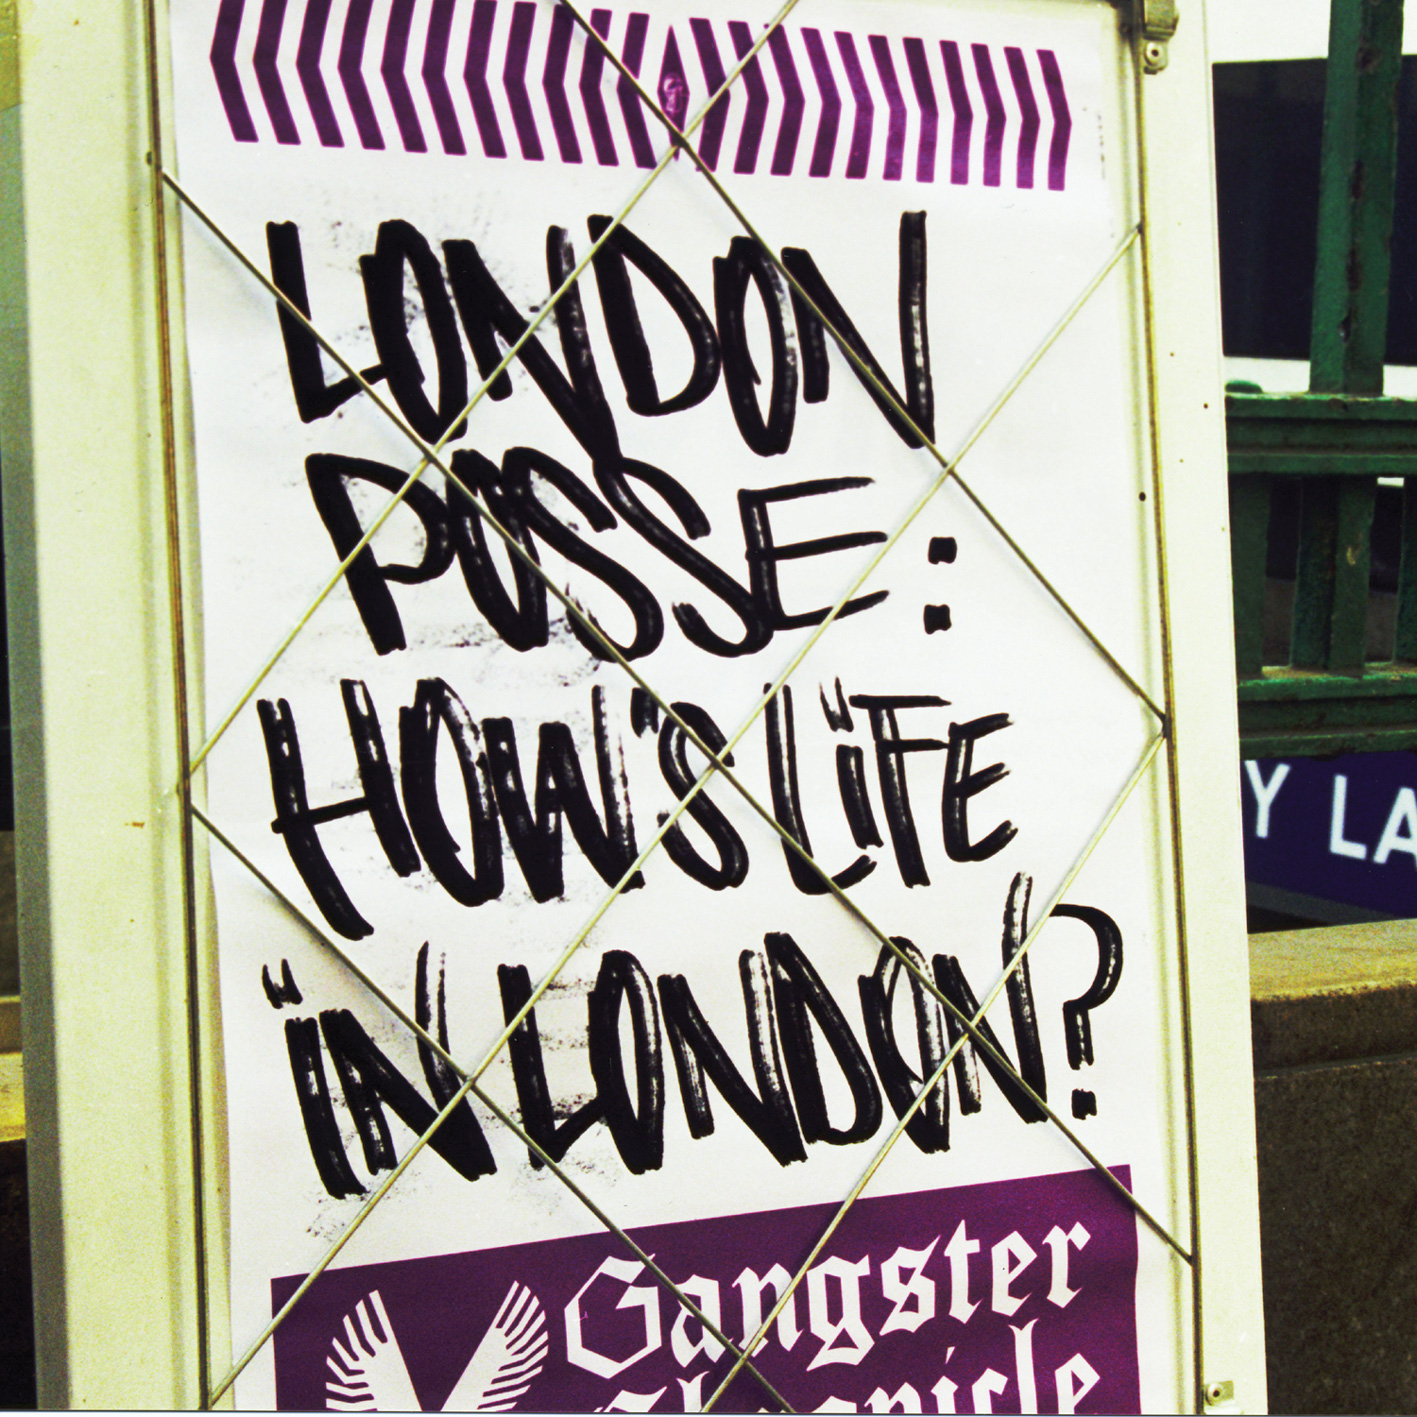 LONDON
POSSE:
HOW'S LiFE
iN LONDON?
Gangster
Chronicle
Y LA